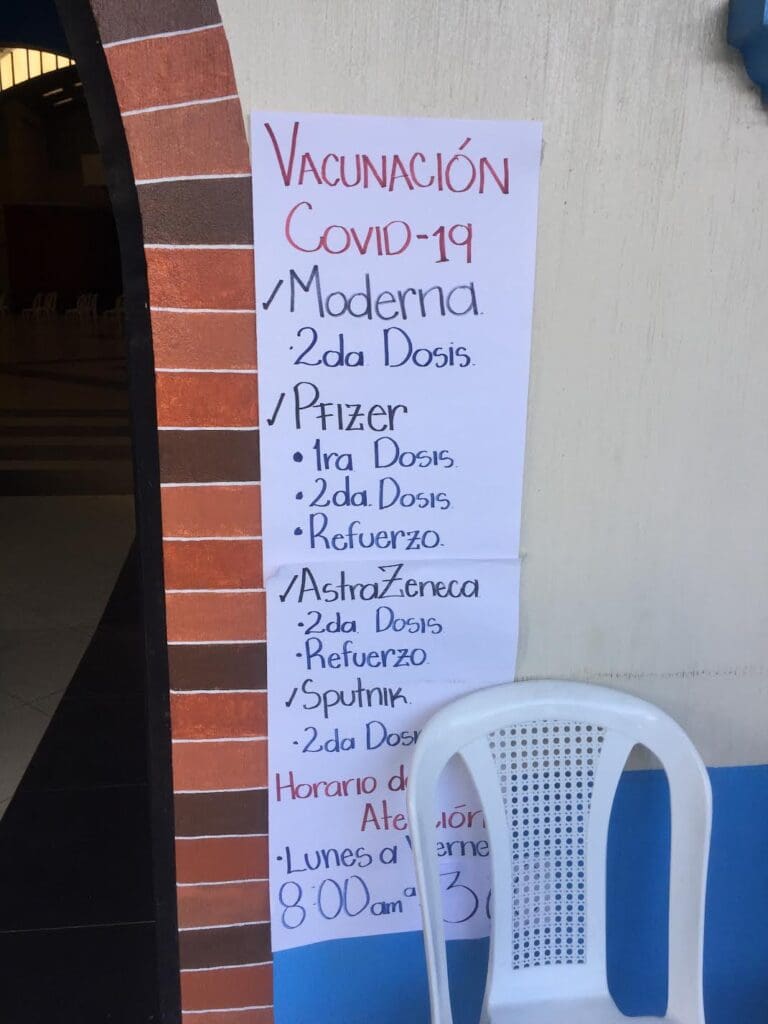 VACUNACIÓN
COVID-19
✓Moderna.
·2da Dosis.
✓PFIZER
•1ra Dosis.
•2da. Dosis.
•Refuerzo.
✓AstraZeneca
·2da Dosis
·Refuerzo.
✓Sputnik.
·2da
Horario
·Lunes a
8:00am a